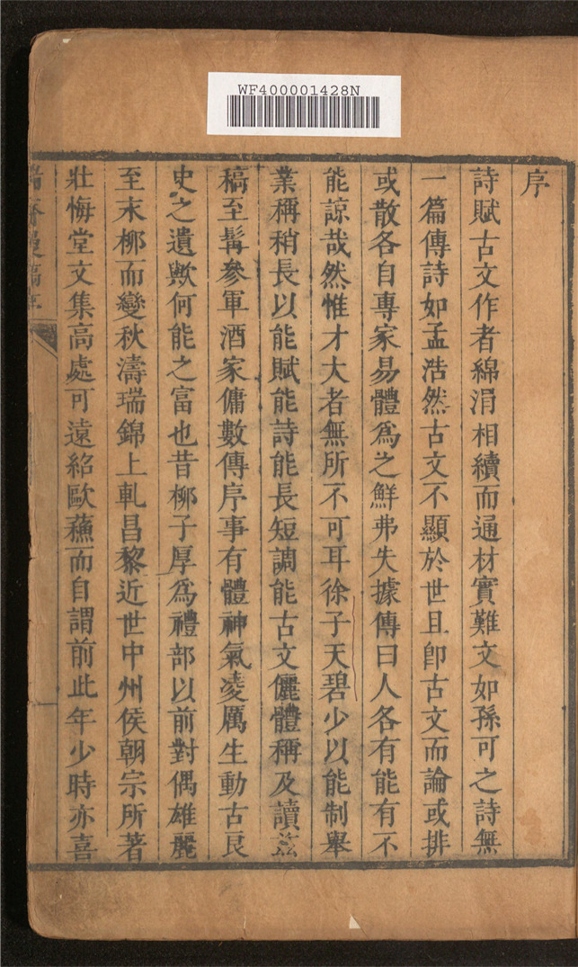 WF400001428N
序
詩賦古文作者綿涓相續而通材實難文如孫可之詩無
一篇傳詩如孟浩然古文不顯於世且卽古文而論或排
或散各自專家易體爲之鮮弗失據傳曰人各有能有不
能諒哉然惟才大者無所不可耳徐子天碧少以能制舉
業稱稍長以能賦能詩能長短調能古文儷體稱及讀茲
稿至髯參軍酒家傭數傳序事有體神氣凌厲生動古良
史之遺歟何能之富也昔柳子厚爲禮部以前對偶雄麗
至末柳而變秋濤瑞錦上軋昌黎近世中州侯朝宗所著
壯悔堂文集高處可遠紹歐蘓而自謂前此年少時亦喜